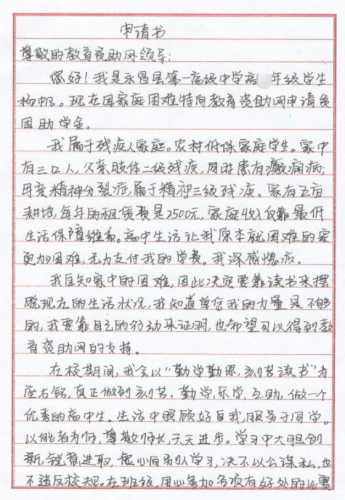 申请书
尊敬的教育资助网领导：
您好！我是永昌县第一高级中学高年级学生
杨帆。现在因家庭困难特向教育资助网申请贫
困助学金。
我属于残疾人家庭。农村低保家庭学生。家中
有三口人，父亲肢体二级残疾，同时患有癫痫病；
母亲精神分裂症，属于精神三级残疾。家有五亩
耕地，每年的租赁费是2500元，家庭收入仅靠最低
生活保障维系。高中生活让我原本就困难的家
更加困难，无力支付我的学费。我深感愧疚。
我自知家中的困难，因此决定要靠读书来摆
脱现在的生活状况，我知道单凭我的力量是不够
的，我要靠自己的行动来证明，也希望可以得到教
育资助网的支持。
在校期间，我会以“勤学勤思，刻苦读书”为
座右铭，真正做到刻苦，勤学，乐学，互助，做一个
优秀的高中生。生活中照顾好自我，服务于同学。
以能者为师，尊敬师长，天天进步。学习中大胆创
新，锐意进取，虚心向别人学习，决不以公谋私，也
不违反校规。在班级，用心参加各项有好处的